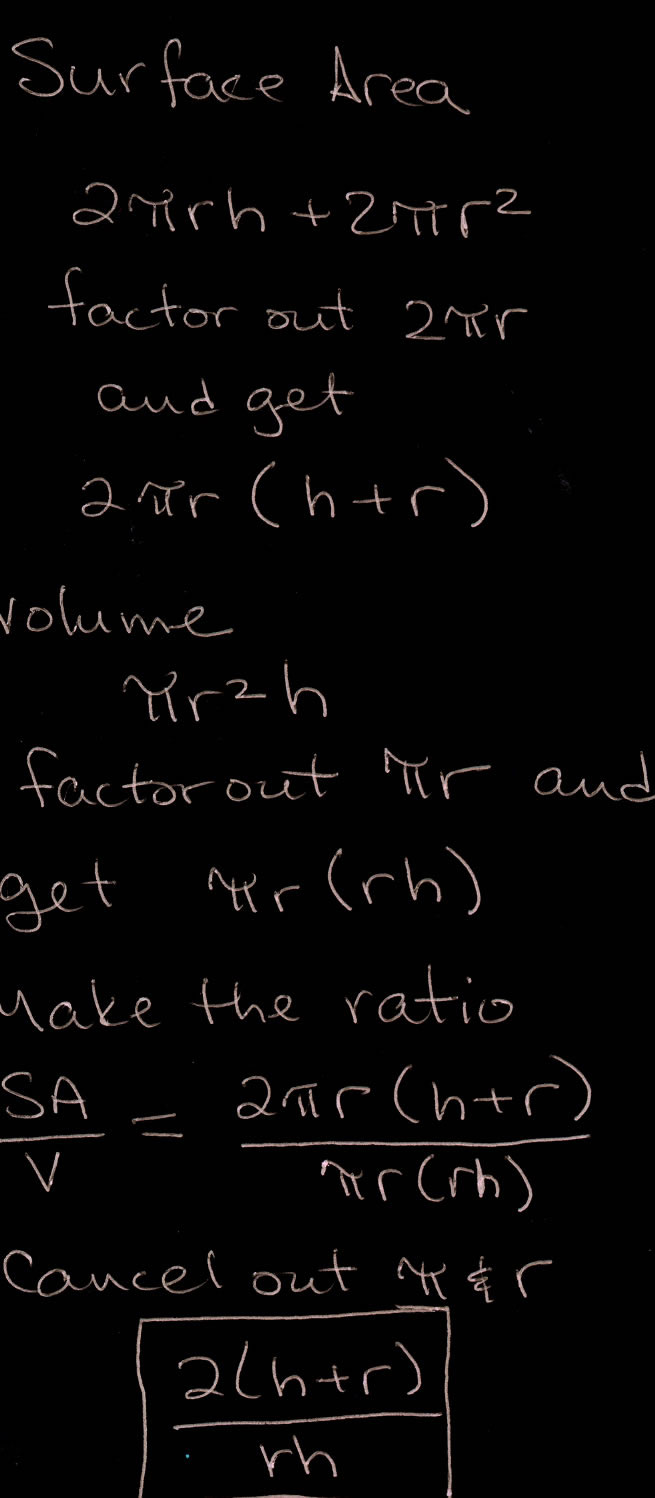 Surface Area
2πrh + 2πr²
factor out 2πr
and get
2πr (h+r)
volume
πr²h
factor out πr and
get πr (rh)
Make the ratio
SA/V = 2πr(h+r)/πr(rh)
Cancel out π & r
2(h+r)/rh